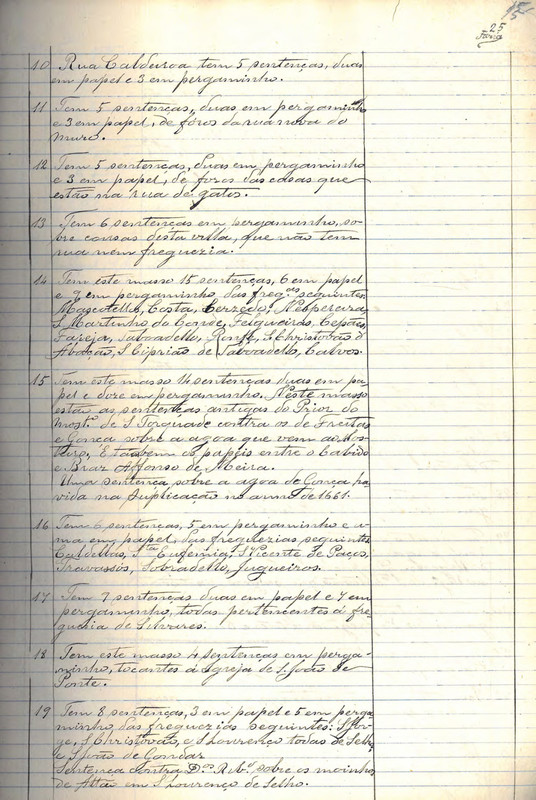 25
10 Rua Caldeiroa tem 5 sentenças, duas
em papel e 3 em pergaminho.
11 Tem 5 sentenças, duas em pergaminho
e 3 em papel, de fóros da rua nova do
muro.
12 Tem 5 sentenças, duas em pergaminho
e 3 em papel, de foros das casas que
estão na rua de gatos.
13 Tem 6 sentenças em pergaminho, so-
bre causas d'esta villa, que não tem
rua nem freguezia.
14 Tem este masso 15 sentenças, 6 em papel
e 9 em pergaminho das freg.as seguintes:
Mascotellos, Costa, Serzedo, Nespereira,
S. Martinho do Conde, Felgueiras, Cepães,
Fareja, Saboadello, Ronfe, S. Christovão d'
Abação, S. Ciprião de Taboadello, Calvos.
15 Tem este masso 14 sentenças duas em pa-
pel e doze em pergaminho. Neste masso
estão as sentenças antigas do Prior do
most.º de S. Torquade contra os de Freitas
e Gonça sobre a agoa que vem ao Mos-
teiro, E tãobem os papeis entre o Cabido
e Braz Affonso de Meira.
Uma sentença sobre a agoa de Gonça ha-
vida na Suplicação no anno de 1661.
16 Tem 6 sentenças, 5 em pergaminho e u-
ma em papel, das freguezias seguintes:
Caldellas, S.ta Eufemia, S. Vicente de Paços,
Travassós, Sobradello, Jugueiros.
17 Tem 9 sentenças duas em papel e 7 em
pergaminho, todas pertencentes á fre-
guesia de Silvares.
18 Tem este masso 4 sentenças em perga-
minho, tocantes á Igreja de S. João de
Ponte.
19 Tem 8 sentenças, 3 em papel e 5 em perga-
minho das freguezias seguintes: S. Jor-
ge, S. Christovão, e S. Lourenço todas de Selho,
e S. João de Gondar.
Sentença contra D.os Rib.º sobre os moinhos
de Attão em S. Lourenço de Selho.